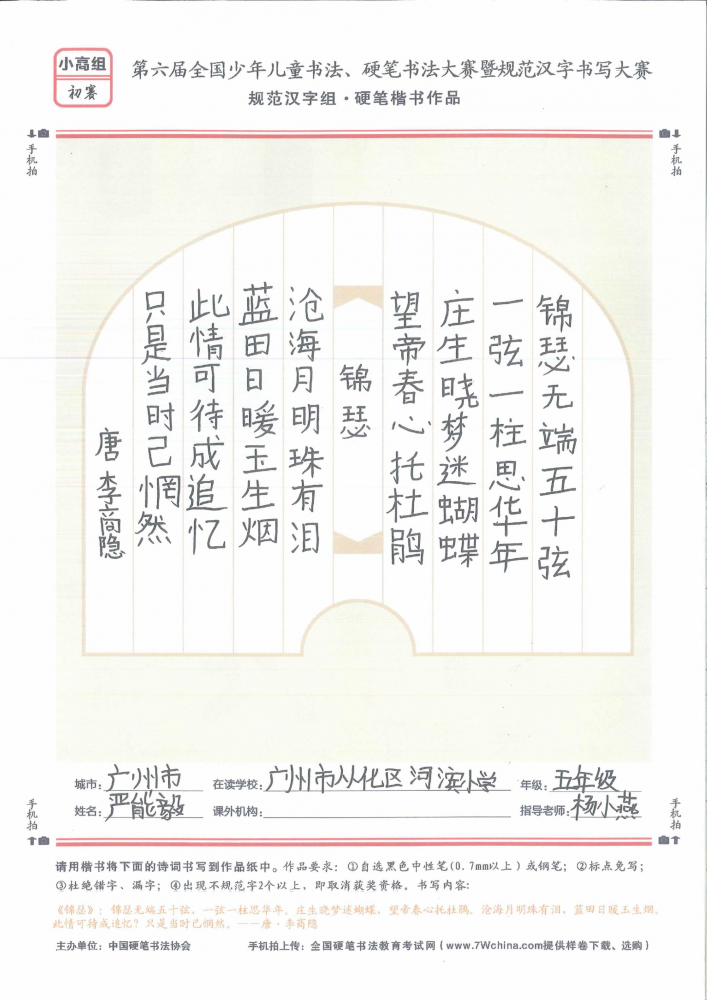 小高组
初赛
第六届全国少年儿童书法、硬笔书法大赛暨规范汉字书写大赛
规范汉字组·硬笔楷书作品
手机拍
手机拍
锦瑟无端五十弦
一弦一柱思华年
庄生晓梦迷蝴蝶
望帝春心托杜鹃
锦瑟
沧海月明珠有泪
蓝田日暖玉生烟
此情可待成追忆
只是当时己惘然
唐 李商隐
城市：广州市 在读学校：广州市从化区河滨小学 年级：五年级
姓名：严能毅 课外机构： 指导老师：杨小燕
手机拍
手机拍
请用楷书将下面的诗词书写到作品纸中。作品要求：①自选黑色中性笔(0.7mm以上)或钢笔；②标点免写；
③杜绝错字、漏字；④出现不规范字2个以上，即取消获奖资格。书写内容：
《锦瑟》：锦瑟无端五十弦，一弦一柱思华年。庄生晓梦迷蝴蝶，望帝春心托杜鹃。沧海月明珠有泪，蓝田日暖玉生烟。
此情可待成追忆？只是当时已惘然。——唐·李商隐
主办单位：中国硬笔书法协会 手机拍上传：全国硬笔书法教育考试网（www.7Wchina.com提供样卷下载、选购）